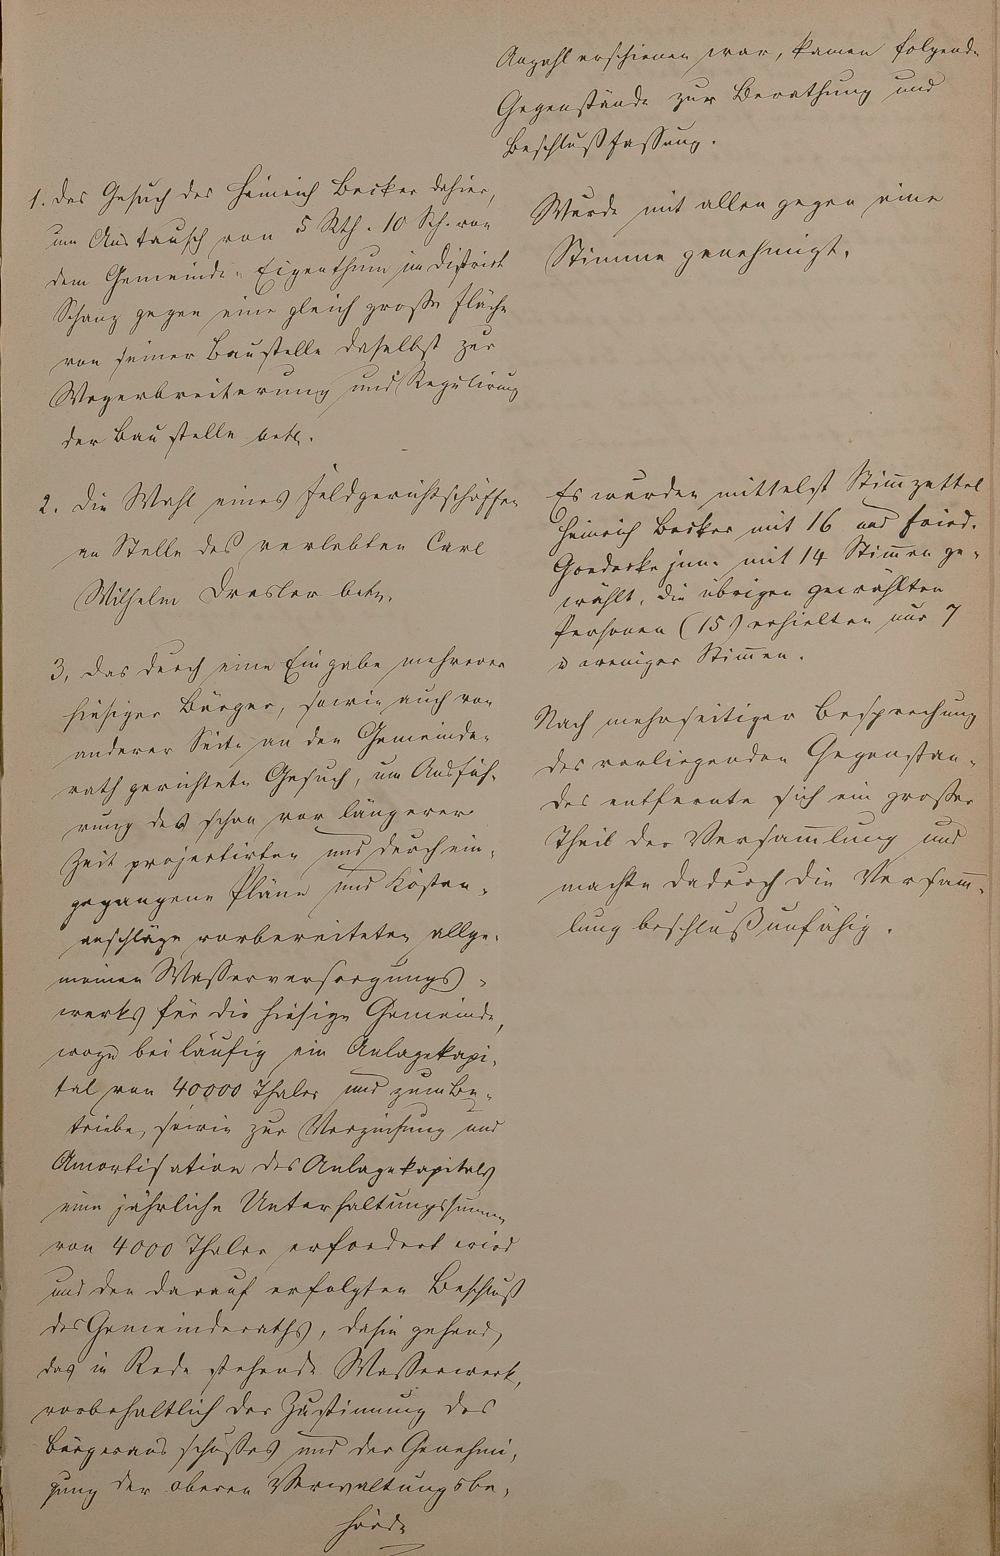 Anzahl erschienen war, kamen folgende
Gegenstände zur Berathung und
Beschlußfassung.
1. Das Gesuch des Heinrich Becker dahier,
um Austausch von 5 Rth. 10 Sch. von
dem Gemeinde-Eigenthum im District
Schanz gegen eine gleich große Fläche
von seiner Baustelle daselbst zur
Wegerbreiterung und Regulirung
der Baustelle betr.
Wurde mit allen gegen eine
Stimme genehmigt.
2. Die Wahl eines Feldgerichtsschöffen
an Stelle des verlebten Carl
Wilhelm Dresler betr.
Es wurden mittelst Stimzettel
Heinrich Becker mit 16 und Fried.
Goedecke jun. mit 14 Stimen ge-
wählt, die übrigen gewählten
Personen (15) erhielten nur 7
u weniger Stimen.
3. Das durch eine Eingabe mehrerer
hiesiger Bürger, sowie auch von
anderer Seite an den Gemeinde-
rath gerichtete Gesuch, um Ausfüh-
rung des schon vor längerer
Zeit projectirten und durch ein-
gegangene Pläne und Kosten-
anschläge vorbereiteten allge-
meinen Wasserversorgungs-
werks für die hiesige Gemeinde,
wozu beiläufig ein Anlagekapi-
tal von 40000 Thaler und zum Be-
triebe, sowie zur Verzinsung und
Amortisation des Anlagekapitals
eine jährliche Unterhaltungssumme
von 4000 Thaler erfordert wird
und den darauf erfolgten Beschluß
des Gemeinderaths, dahin gehend,
das in Rede stehende Wasserwerk,
vorbehaltlich der Zustimung des
Bürgerausschußes und der Genehmi-
gung der oberen Verwaltungsbe-
hörde
Nach mehrseitiger Besprechung
des vorliegenden Gegenstan-
des entfernte sich ein großer
Theil der Versamlung und
machte dadurch die Versam-
lung beschlußunfähig.